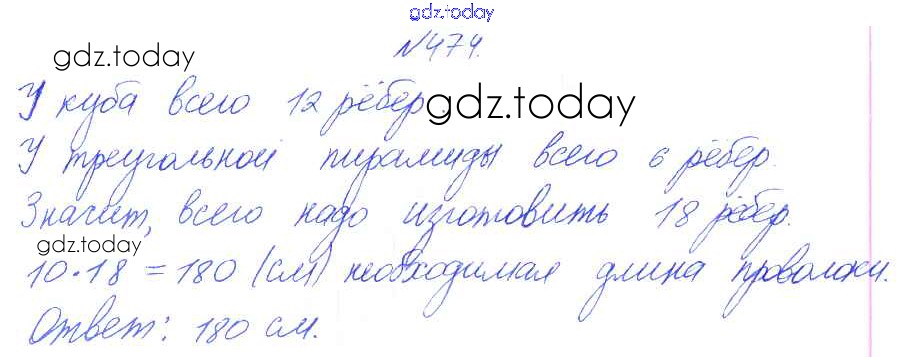 gdz.today
№474.
gdz.today
У куба всего 12 рёбер
gdz.today
У треугольной пирамиды всего 6 рёбер.
Значит, всего надо изготовить 18 рёбер.
gdz.today
10·18 = 180 (см) необходимая длина проволоки.
Ответ: 180 см.